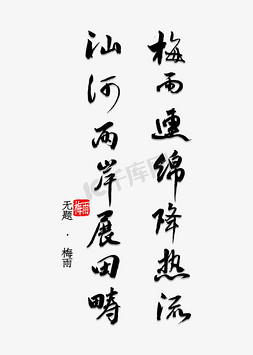 梅雨连绵降热流
汕河两岸展田畴
无题·梅雨
梅雨
千库网